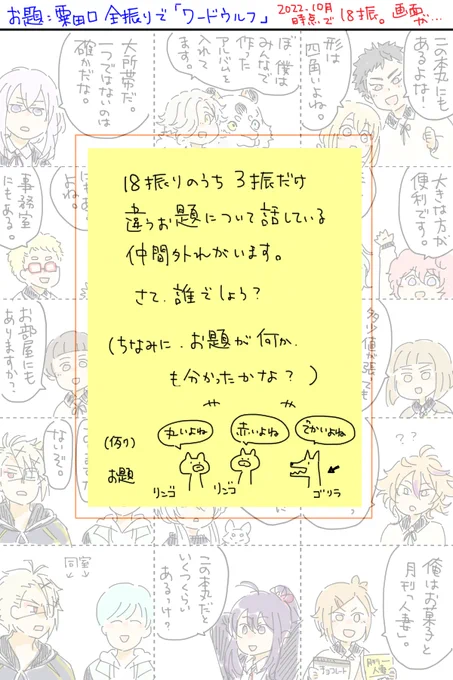 お題:粟田口 全振りで「ワードウルフ」
2022.10月時点で18振。画面が…
大所帯だ。一つではないのは確かだな。
ぼ、僕はみんなで作ったアルバムを入れてます。
形は四角いよね。
この本丸にもあるよな!
事務室にもある。
よね。
大きな方が便利です。
お部屋にもありますか?
多少値が張っても
ないぞ。
??
同室
この本丸だといくつくらいあるっけ?
俺はお菓子と月刊「人妻」。
チョコレート
人妻
18振りのうち 3振だけ
違うお題について話している
仲間外れがいます。
さて、誰でしょう?
(ちなみに、お題が何か、
も分かったかな?)
(例り)
お題
丸いよね
赤いよね
でかいよね
リンゴ
リンゴ
ゴリラ